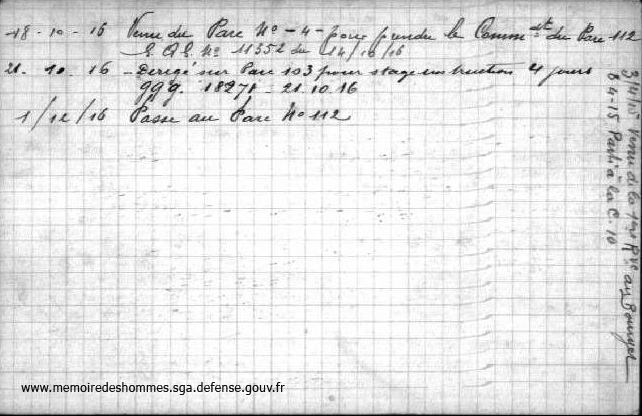 18-10-16 Venu du Parc No -4- pour prendre le Commdt du Parc 112
G.Q.G. No 11552 du 14/10/16
21. 10. 16 - Dérigé sur Parc 103 pour stage instruction 4 jours
GQG. 18278 - 21.10.16
1/12/16 Passe au Parc No 112
Venu de la Rve au Bourget
8-4-15 Parti à la C. 10
www.memoiredeshommes.sga.defense.gouv.fr